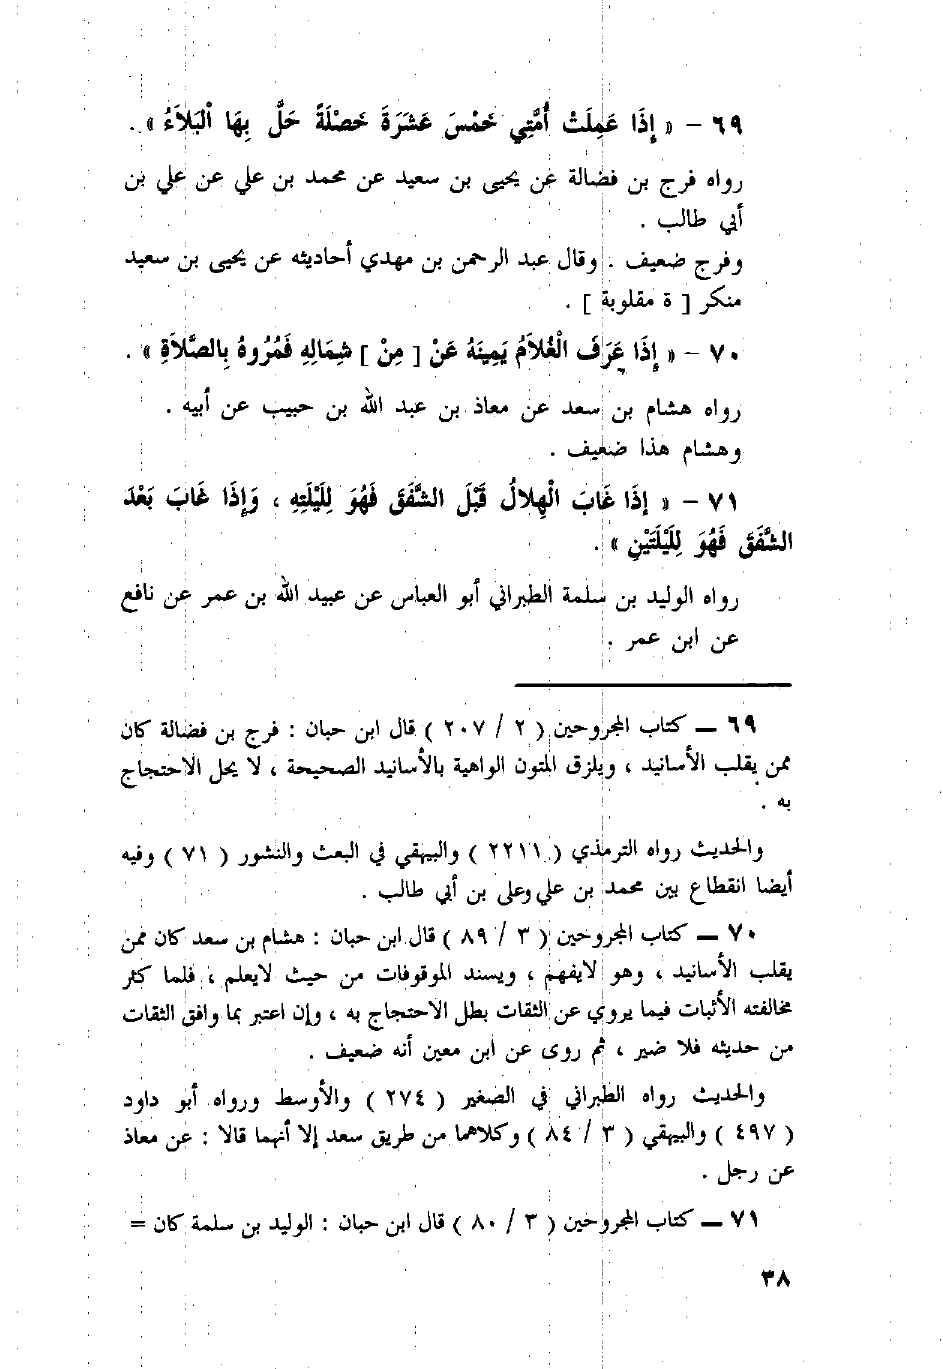 ٦٩ - « إِذَا عَمِلَتْ أُمَّتِي خَمْسَ عَشَرَةَ خَصْلَةً حَلَّ بِهَا الْبَلاَءُ » .
رواه فرج بن فضالة عن يحيى بن سعيد عن محمد بن علي عن علي بن
أبي طالب .
وفرج ضعيف . وقال عبد الرحمن بن مهدي أحاديثه عن يحيى بن سعيد
منكر [ ة مقلوبة ] .
٧٠ - « إِذَا عَرَفَ الْغُلاَمُ يَمِينَهُ عَنْ [ مِنْ ] شِمَالِهِ فَمُرُوهُ بِالصَّلاَةِ » .
رواه هشام بن سعد عن معاذ بن عبد الله بن حبيب عن أبيه .
وهشام هذا ضعيف .
٧١ - « إِذَا غَابَ الْهِلالُ قَبْلَ الشَّفَقَ فَهُوَ لِلَيْلَتِهِ ، وَإِذَا غَابَ بَعْدَ
الشَّفَقَ فَهُوَ لِلَيْلَتَيْنِ » .
رواه الوليد بن سلمة الطبراني أبو العباس عن عبيد الله بن عمر عن نافع
عن ابن عمر .
٦٩ ــ كتاب المجروحين ( ٢ / ٢٠٧ ) قال ابن حبان : فرج بن فضالة كان
ممن يقلب الأسانيد ، ويلزق المتون الواهية بالأسانيد الصحيحة ، لا يحل الاحتجاج
به .
والحديث رواه الترمذي ( ٢٢١١ ) والبيهقي في البعث والنشور ( ٧١ ) وفيه
أيضا انقطاع بين محمد بن علي وعلى بن أبي طالب .
٧٠ ــ كتاب المجروحين ( ٣ / ٨٩ ) قال ابن حبان : هشام بن سعد كان ممن
يقلب الأسانيد ، وهو لايفهم ، ويسند الموقوفات من حيث لايعلم ، فلما كثر
مخالفته الأثبات فيما يروي عن الثقات بطل الاحتجاج به ، وإن اعتبر بما وافق الثقات
من حديثه فلا ضير ، ثم روى عن ابن معين أنه ضعيف .
والحديث رواه الطبراني في الصغير ( ٢٧٤ ) والأوسط ورواه أبو داود
( ٤٩٧ ) والبيهقي ( ٣ / ٨٤ ) وكلاهما من طريق سعد إلا أنهما قالا : عن معاذ
عن رجل .
٧١ ــ كتاب المجروحين ( ٣ / ٨٠ ) قال ابن حبان : الوليد بن سلمة كان =
٣٨